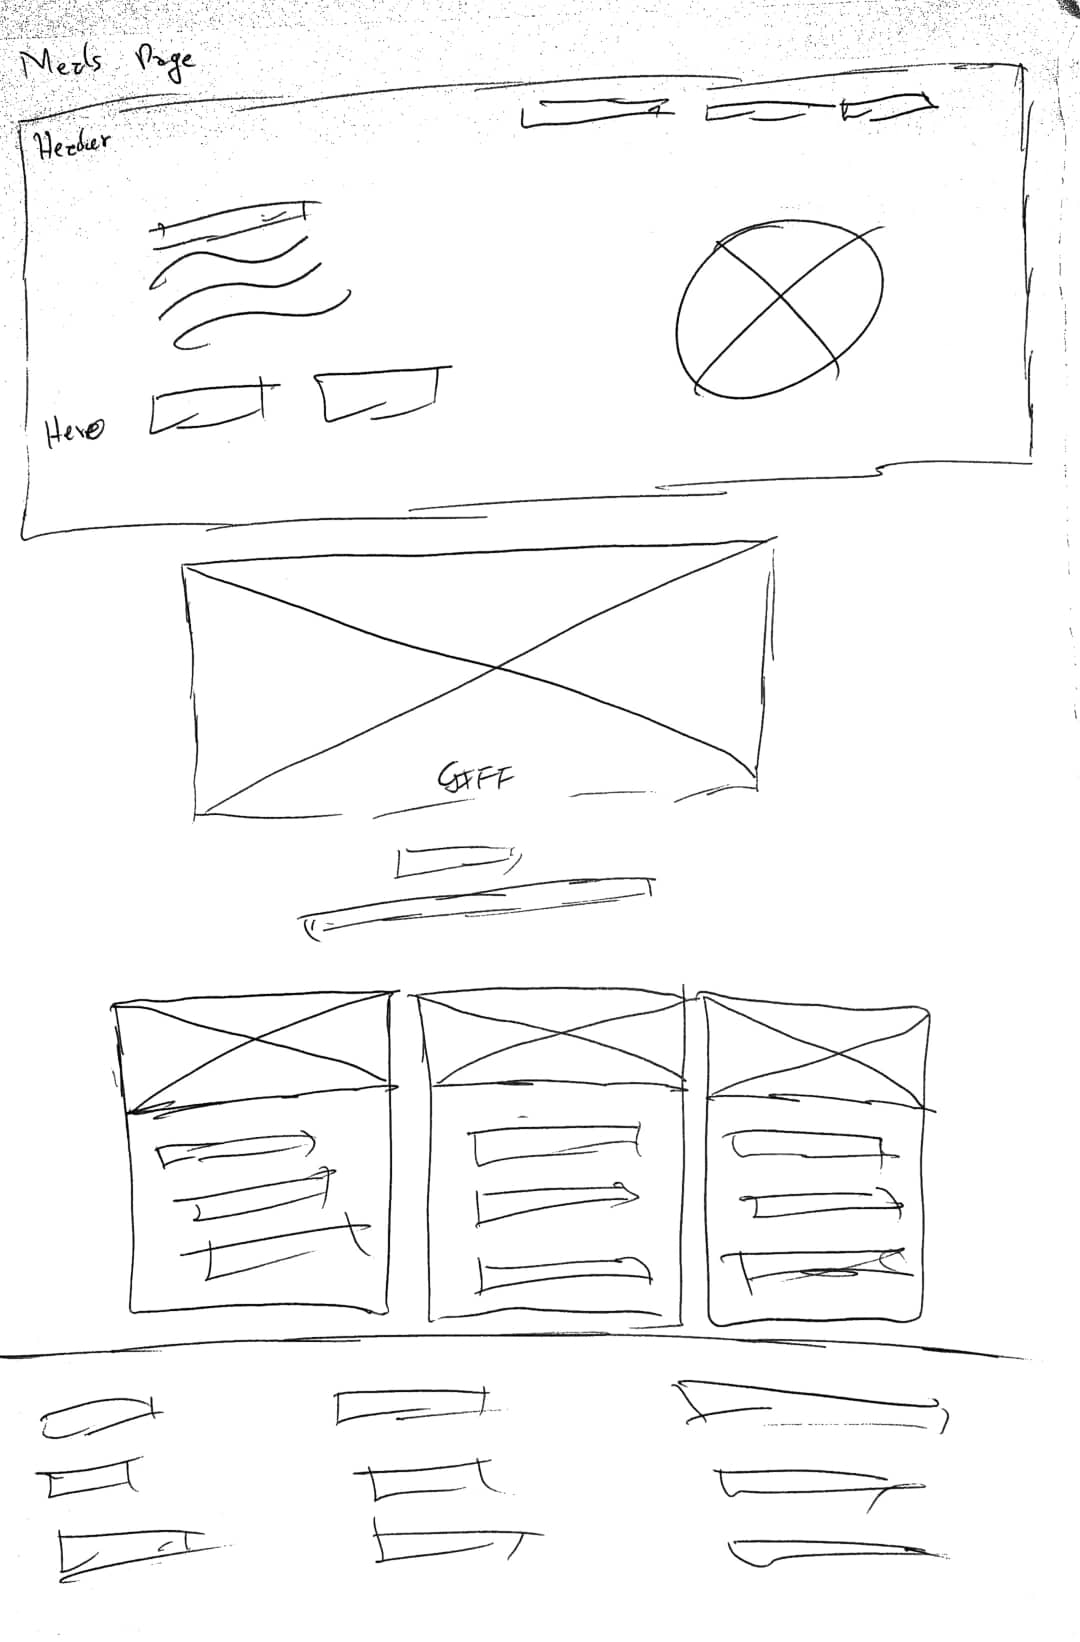 Meals Page
Header
Hero
GIFF